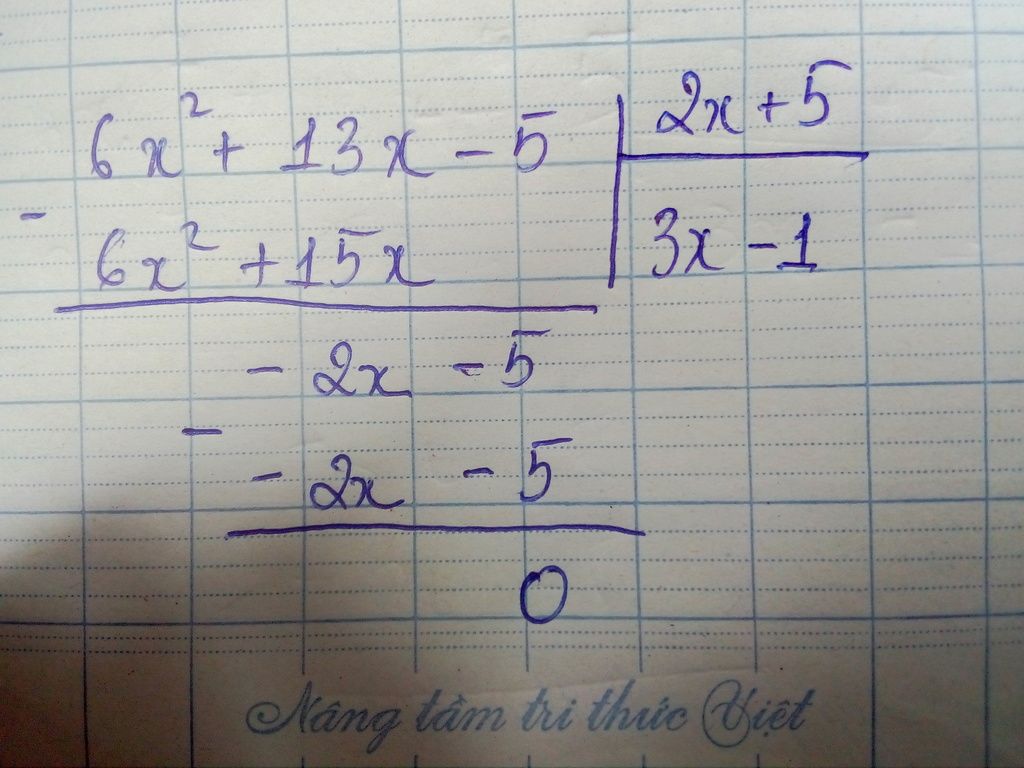 6x² + 13x - 5 | 2x + 5
-
6x² + 15x | 3x - 1
- 2x - 5
-
- 2x - 5
0
Nâng tầm tri thức Việt